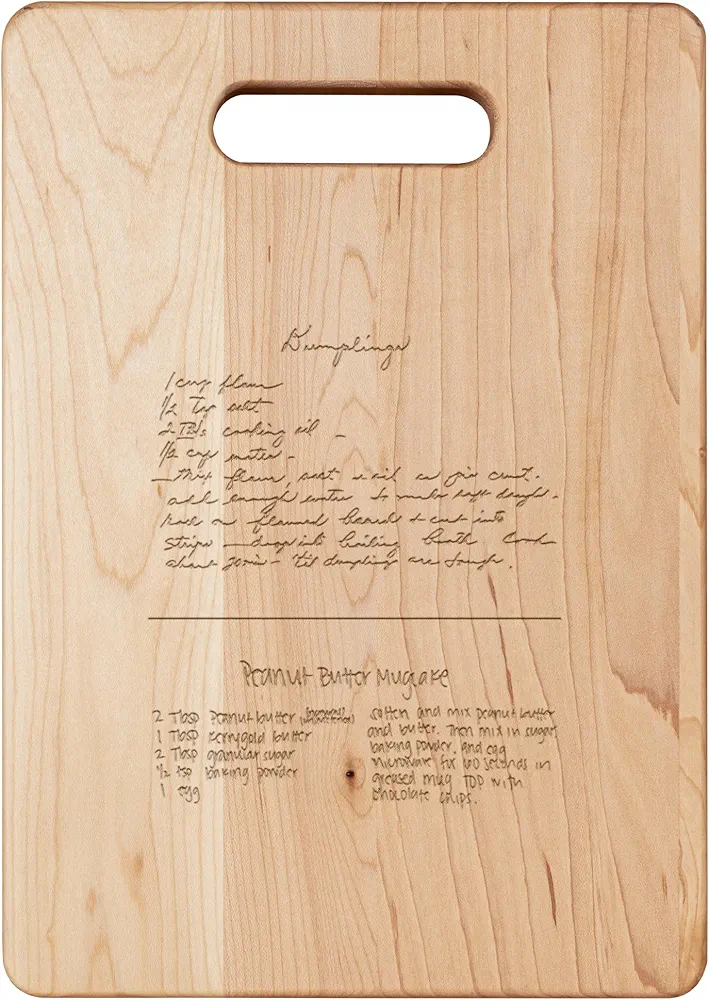 Dumplings
1 cup flour
1/2 Tsp salt
2 TBls cooking oil -
1/2 cup water -
- Mix flour, salt & oil as pie crust.
add enough water to make soft dough.
Roll on floured board & cut into
strips - drop into boiling broth Cook
about 20 min - 'til dumplings are tough.
Peanut Butter Mugcake
2 Tbsp Peanut butter
1 Tbsp Kerrygold butter
2 Tbsp granular sugar
1/2 tsp baking powder
1 egg
soften and mix peanut butter
and butter. Then mix in sugar,
baking powder, and egg
microwave for 60 seconds in
greased mug TOP with
chocolate chips.